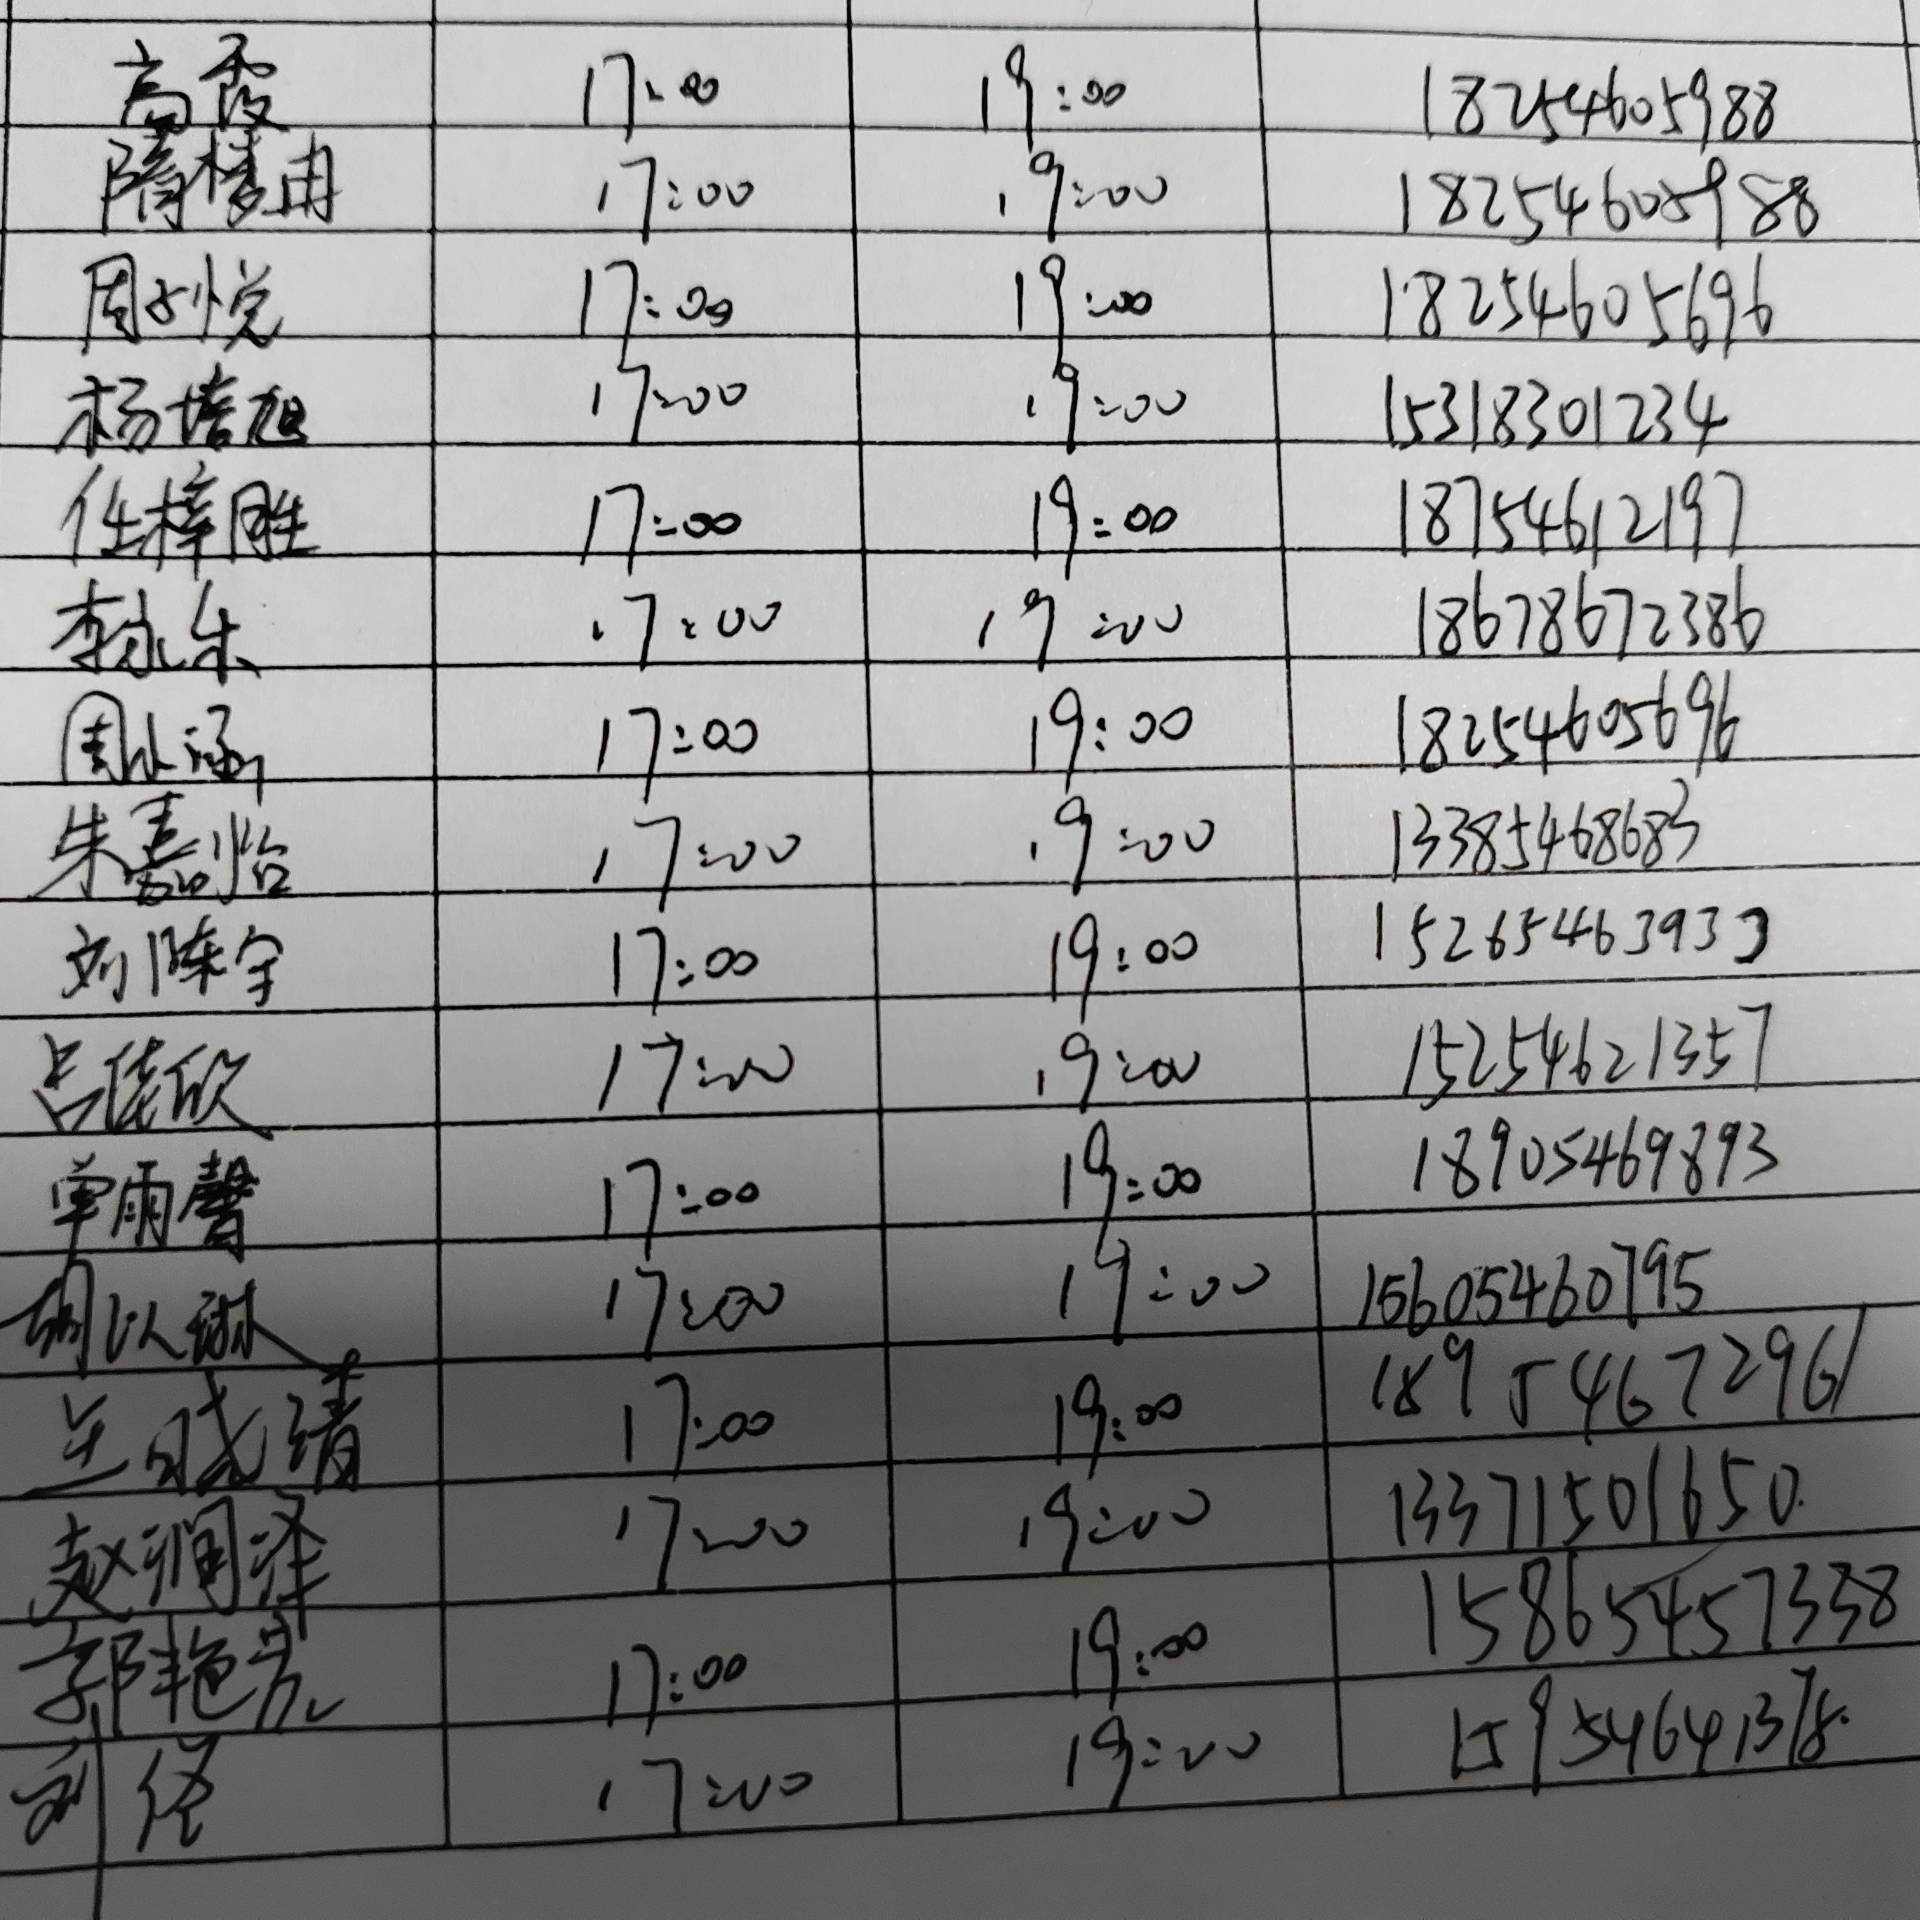 高霞 17:00 19:00 18254605988
隋梦冉 17:00 19:00 18254605988
周子悦 17:00 19:00 18254605696
杨培旭 17:00 19:00 15318301234
任梓胜 17:00 19:00 18754612197
李永乐 17:00 19:00 18678672386
周小涵 17:00 19:00 18254605696
朱嘉怡 17:00 19:00 13385468683
刘陈宇 17:00 19:00 15265463933
吕佳欣 17:00 19:00 15254621357
单雨馨 17:00 19:00 18905469893
胡以琳 17:00 19:00 15605460795
兰晓靖 17:00 19:00 17:00 19:00
赵润泽 17:00 19:00 13371501650
郭艳亮 17:00 19:00 15865457338
刘 17:00 19:00 15954641378